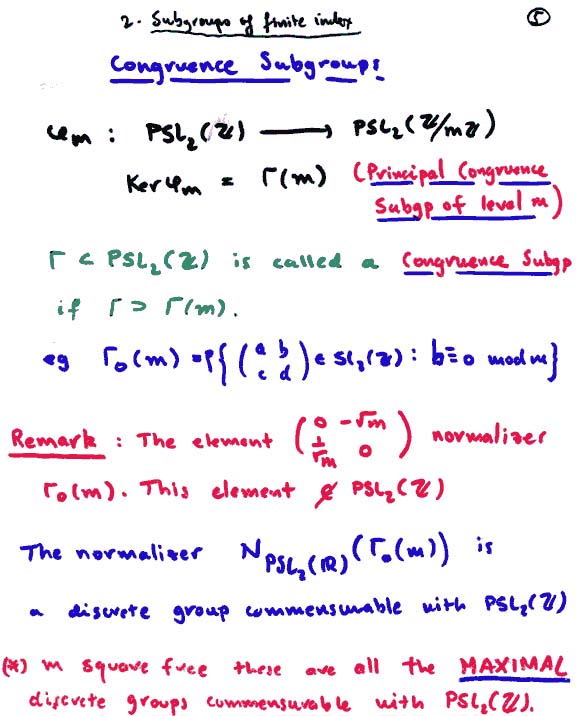 2. Subgroups of finite index ⑤
Congruence Subgroups
φm : PSL₂(ℤ) ⟶ PSL₂(ℤ/mℤ)
Ker φm = Γ(m) (Principal Congruence
Subgp of level m)
Γ < PSL₂(ℤ) is called a Congruence Subgp
if Γ ⊃ Γ(m).
eg Γ₀(m) = P{(a b
c d) ∈ SL₂(ℤ) : b ≡ 0 mod m}
Remark : The element (0 -√m
1/√m 0) normalizer
Γ₀(m). This element ∉ PSL₂(ℤ)
The normalizer N_PSL₂(ℝ)(Γ₀(m)) is
a discrete group commensurable with PSL₂(ℤ)
(*) m square free these are all the MAXIMAL
discrete groups commensurable with PSL₂(ℤ).